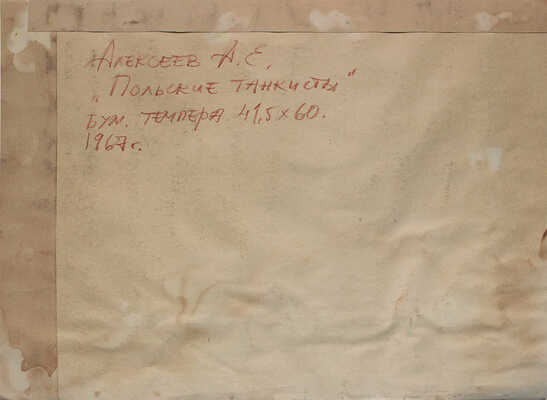 Алексеев А.Е.
„Польские танкисты"
Бум. темпера 41,5 x 60.
1967 г.